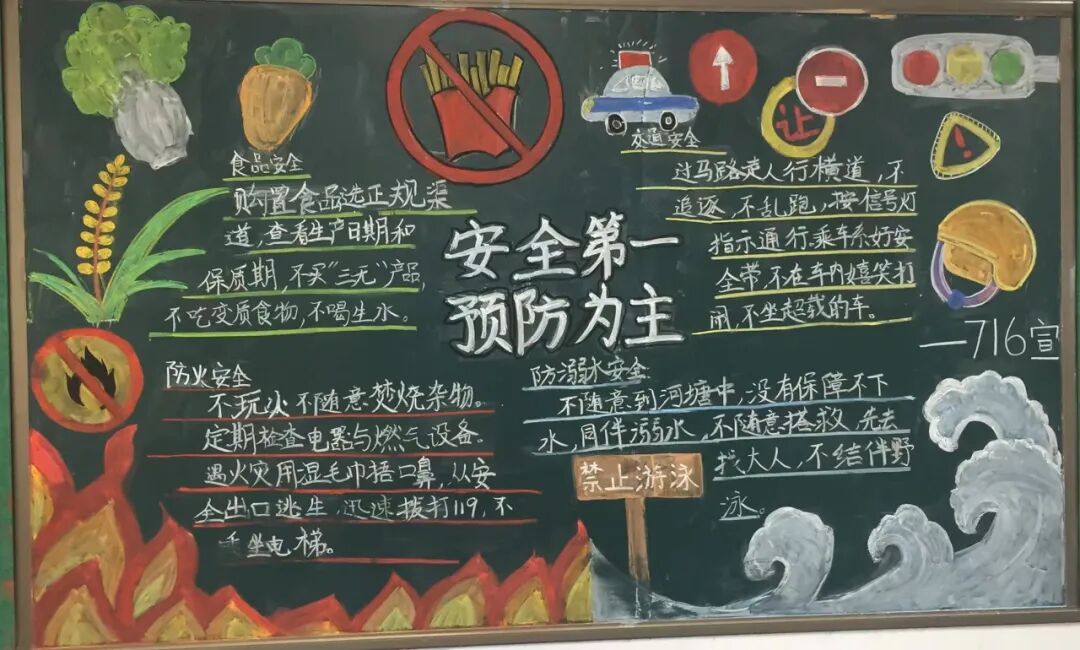 食品安全
购置食品选正规渠
道,查看生产日期和
保质期,不买"三无"产品,
不吃变质食物,不喝生水。
安全第一
预防为主
让
交通安全
过马路走人行横道,不
追逐,不乱跑,按信号灯
指示通行.乘车系好安
全带,不在车内嬉笑打
闹,不坐超载的车。
—716宣
防火安全
不玩火不随意焚烧杂物。
定期检查电器与燃气设备。
遇火灾用湿毛巾捂口鼻,从安
全出口逃生,迅速拨打119,不
乘坐电梯。
防溺水安全
不随意到河塘中,没有保障不下
水,同伴溺水,不随意搭救,先去
找大人,不结伴野
泳。
禁止游泳